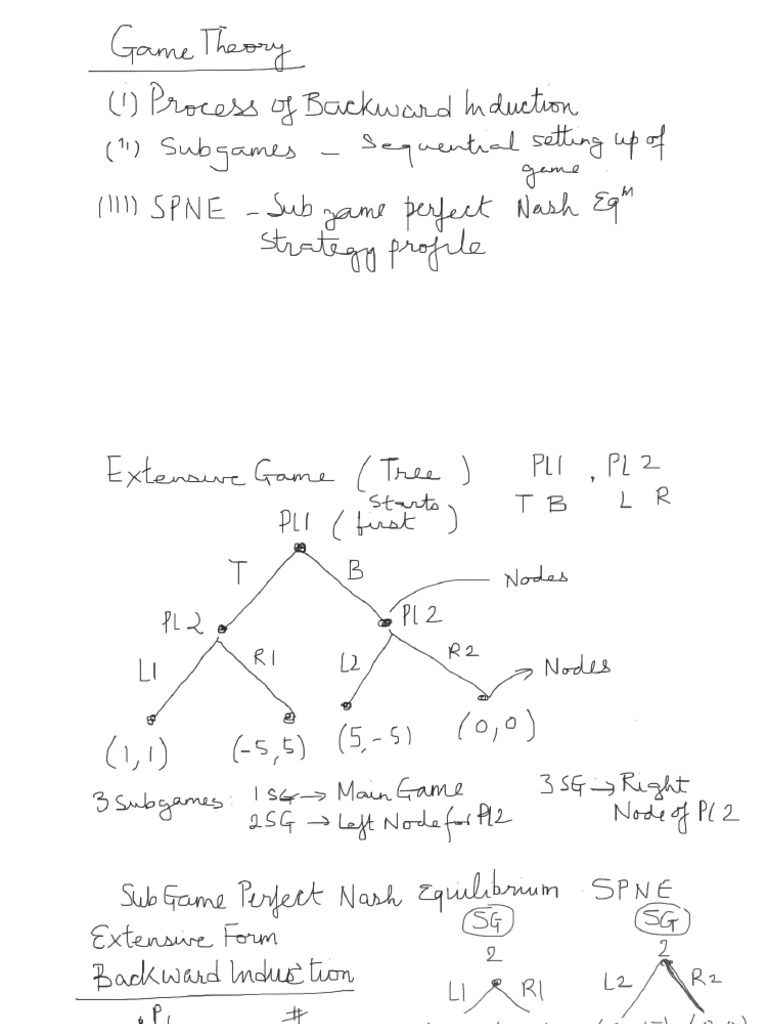 Game Theory
(i) Process of Backward Induction
(ii) Subgames - Sequential setting up of
game
(iii) SPNE - Sub game perfect Nash Eqᴹ
Strategy profile
Extensive Game (Tree) PL1, PL2
Starts T B L R
PL1 (first)
T B Nodes
PL2 PL2
L1 R1 L2 R2 Nodes
(1,1) (-5,5) (5,-5) (0,0)
3 Subgames: 1 SG → Main Game 3 SG → Right
2SG → Left Node for Pl2 Node of Pl 2
SubGame Perfect Nash Equilibrium SPNE
SG SG
Extensive Form 2 2
Backward Induction L1 R1 L2 R2
P1 #